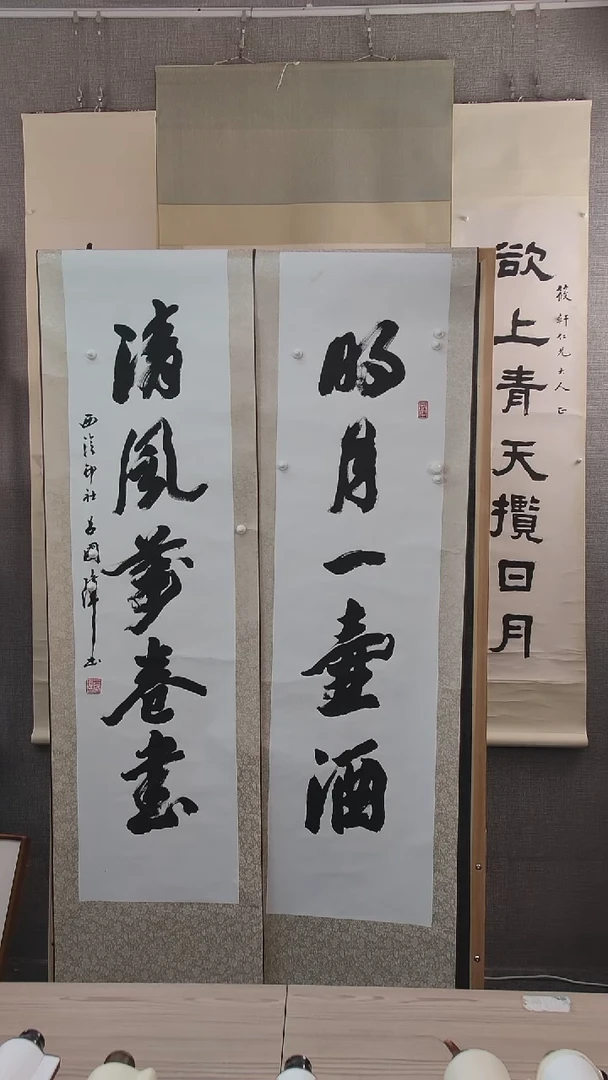 欲上青天攬日月
筱軒仁兄大人正
明月一壺酒
清風萬卷書
西泠印社 李國強書